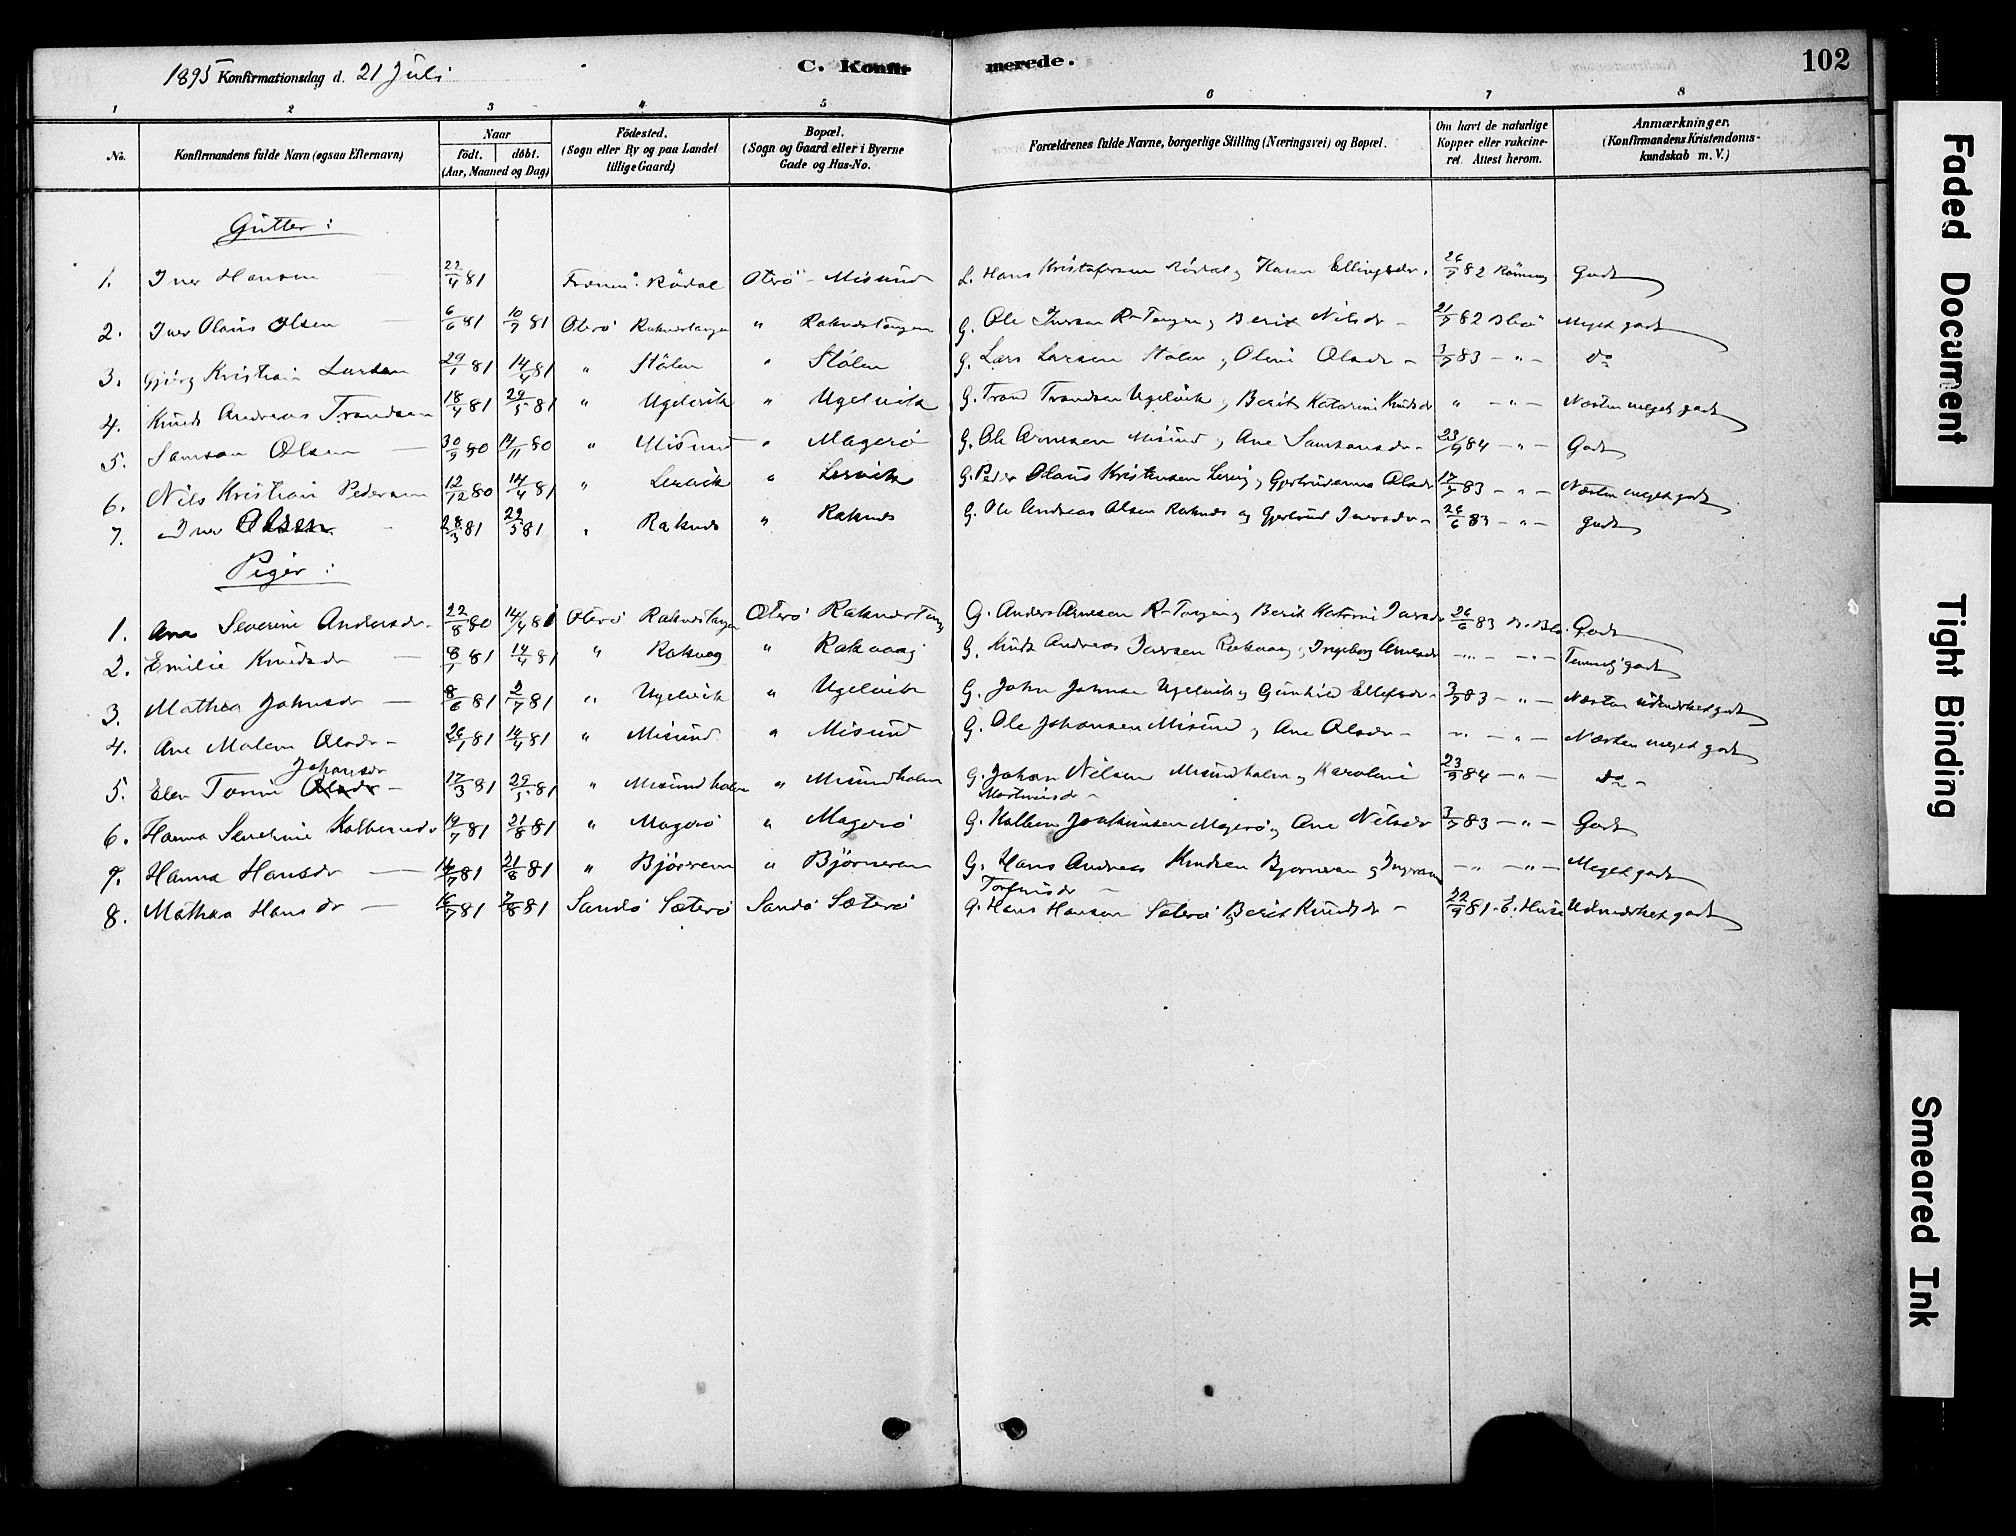 1895 Konfirmationsdag d. 21 Juli C. Konfirmerede. 102
1 2 3 4 5 6 7 8
No. Konfirmandens fulde Navn (ogsaa Efternavn) Naar födt. döbt. (Aar, Maaned og Dag) Födested. (Sogn eller By og paa Landet tillige Gaard) Bopæl. (Sogn og Gaard eller i Byerne Gade og Hus-No. Forældrenes fulde Navne, borgerlige Stilling (Næringsvei) og Bopæl. Om havt de naturlige Kopper eller vakcineret. Attest herom. Anmærkninger. (Konfirmandens Kristendomskundskab m. V.)
Gutter:
1. Iver Hansen 22/4 81 Rödal Oterö - Misund L. Hans Kristofersen Rödal, Karen Ellingsdr. 26/7 82 Godt
2. Iver Olaus Olsen 6/6 81 10/7 81 Oterö Raknestangen " Raknestangen G. Ole Iversen R-Tangen, Berit Nilsdr - 21/7 82 Meget godt
3. Gjörg Kristian Larsen 29/1 81 14/4 81 " Stölen " Stölen G. Lars Larsen Stölen, Oline Olsdr - 3/7 83 - " - do
4. Knud Andreas Trondsen 18/4 81 29/5 81 " Ugelvik " Ugelvik G. Trond Trondsen Ugelvik, Berit Katarine Knudsdr " - " - Næsten meget godt
5. Samson Olsen 30/9 80 14/11 80 " Misund " Magerö G. Ole Arnesen Misund, Ane Samsonsdr - 23/9 84 - " - Godt
6. Nils Kristian Pedersen 12/12 80 14/4 81 " Lervik " Lervik G. Peder Olaus Kristensen Lervig, Gjertrudanna Olsdr 17/7 83 - " - Næsten meget godt
7. Iver Olsen - 28/3 81 29/5 81 " Raknes " Raknes G. Ole Andreas Olsen Raknes og Gjertrud Iversdr - 26/6 83 - " - godt
Piger:
1. Ane Severine Andersdr. 22/8 80 14/4 81 Oterö Raknestangen Oterö Raknestang G. Anders Arnesen R-Tangen, Berit Katrine Iversdr 26/6 83 Godt
2. Emilie Knudsdr 8/1 81 14/4 81 " Rakvag " Rakvaag G. Knut Andreas Iversen Rakvaag, Ingeborg Arnesdr - " - - " - Temmelig godt
3. Mathea Johnsdr 8/6 81 3/7 81 " Ugelvik " Ugelvik G. John Johnsen Ugelvik, Gunhild Ellefsdr - 3/7 83 - " - Næsten udmerket godt
4. Ane Malene Olsdr - 26/1 81 14/4 81 " Misund " Misund G. Ole Johansen Misund, Ane Olsdr - " - " - Næsten meget godt
Johansdr
5. Elen Tomine Olsdr - 17/3 81 29/5 81 " Misundholm " Misundholm G. Johan Nilsen Misundholm, Karoline 23/9 84 - " - do -
Martinusdr -
6. Hanna Severine Kolbensdr 14/7 81 21/8 81 " Magerö " Magerö G. Kolben Joakimsen Magerö, Ane Nilsdr 3/7 83 - " - Godt
7. Hanna Hansdr - 14/7 81 21/8 81 " Björnrem " Björnerem G. Hans Andreas Knudsen Bjornrem, - " - " - Meget godt
8. Mathea Hansdr - 16/7 81 7/8 81 Sandö Sæterö Sandö Sæterö G. Hans Hansen Sæterö, Berit Knudsdr - 22/9 81 Udmerket godt
Faded Document
Tight Binding
Smeared Ink